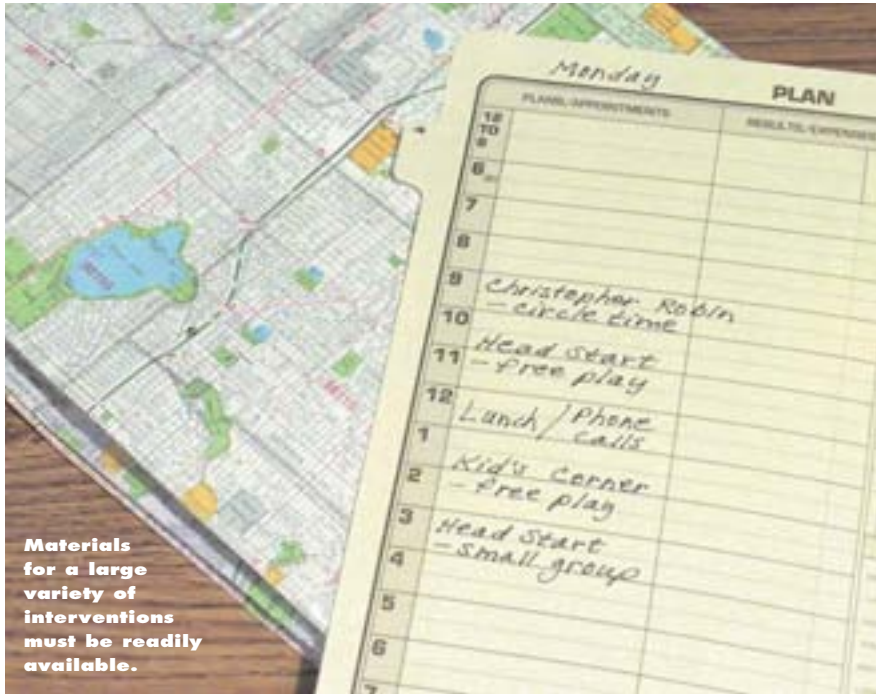 Monday
PLAN
PLANS/APPOINTMENTS
RESULTS/EXPENSES
12
TO
6
6
7
8
9
Christopher Robin
- circle time
10
11
Head Start
- free play
12
Lunch / Phone
calls
1
2
Kid's Corner
- free play
3
Head Start
- small group
4
5
6
7
Materials
for a large
variety of
interventions
must be readily
available.